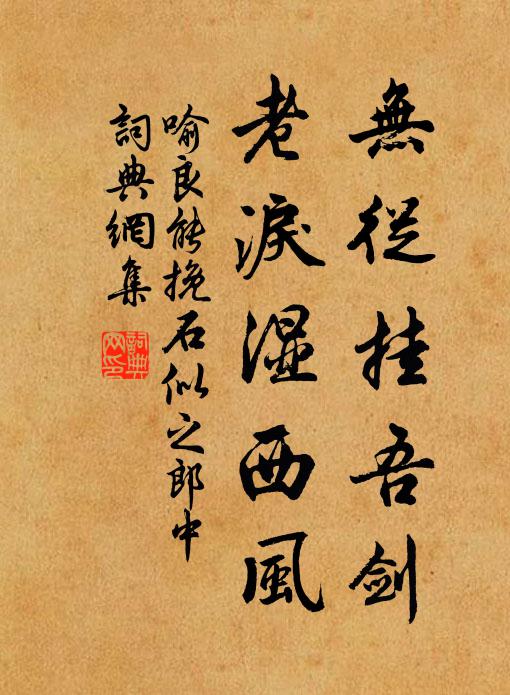 無從挂吾劍
老淚濕西風
喻良能挽石似之郎中
詞典網集
詞典網印